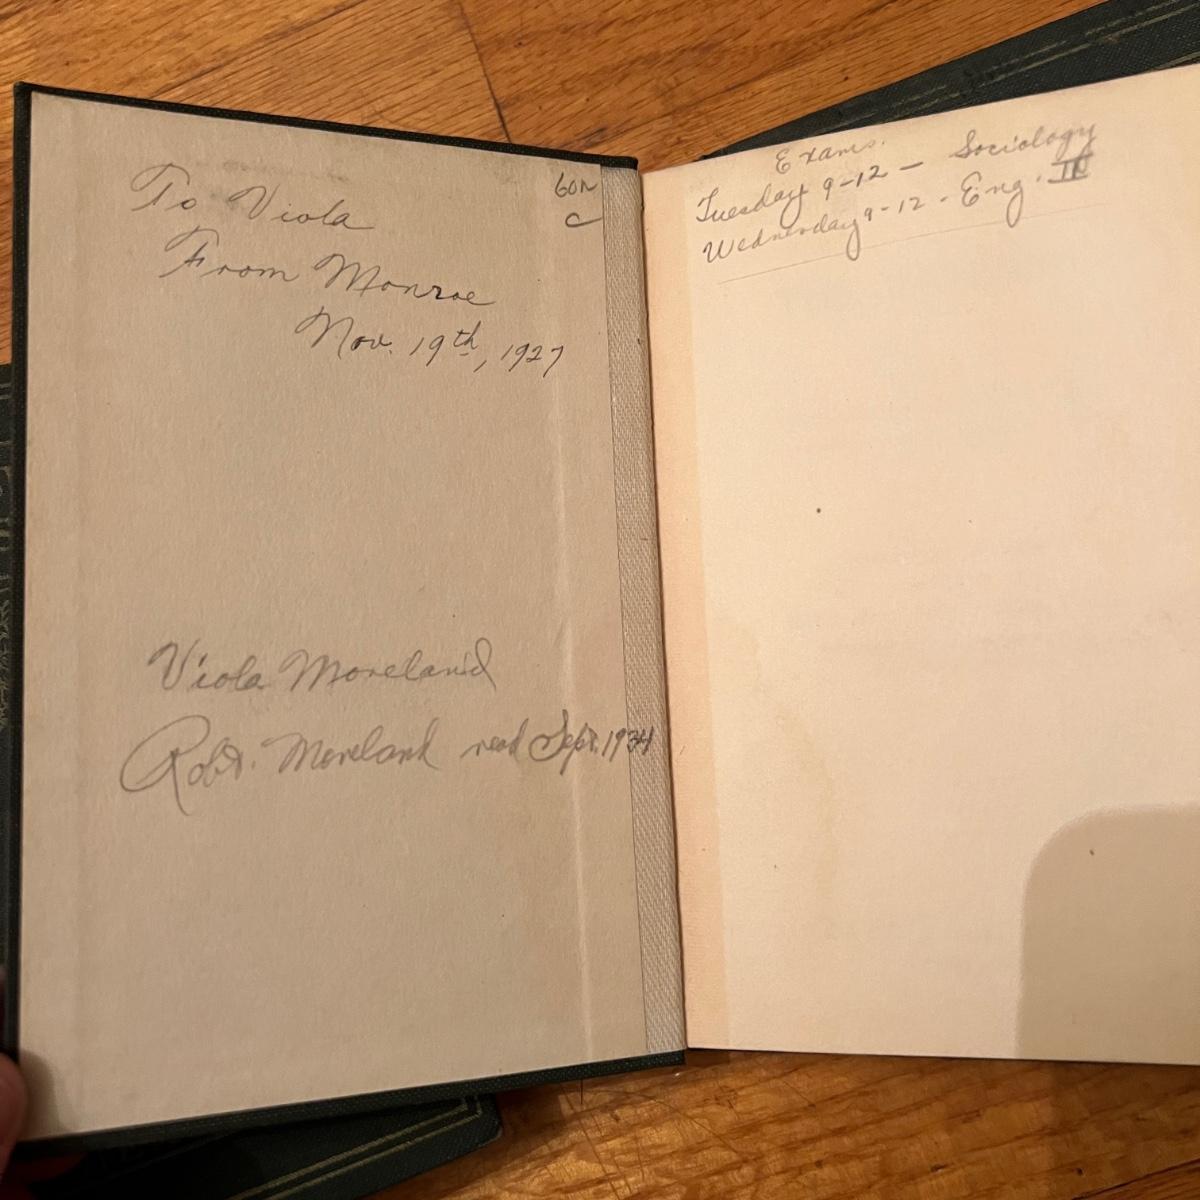 To Viola
From Monroe
Nov. 19th, 1927
Viola Moreland
Robt. Moreland read Sept. 1934
Exams.
Tuesday 9-12 – Sociology
Wednesday 9-12 - Eng. II